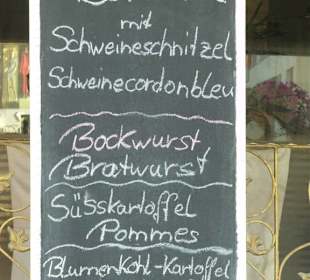 mit
Schweineschnitzel
Schweinecordonbleu
Bockwurst,
Bratwurst
Süsskartoffel
Pommes
Blumenkohl-Kartoffel